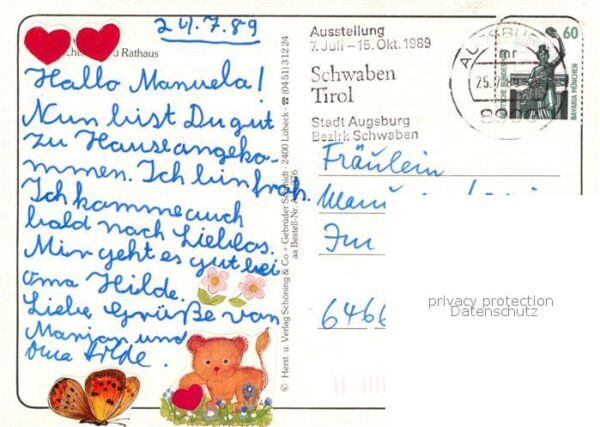 24.7.89
Rathaus
Hallo Manuela!
Nun bist Du gut
zu Hause angeko-
mmen. Ich bin froh.
Ich komme auch
bald nach Lieblos.
Mir geht es gut bei
Oma Hilde.
Liebe Grüße von
Marion und
Oma Hilde.
© Herst. u. Verlag Schöning & Co + Gebrüder Schmidt · 2400 Lübeck · ☎ (04 51) 3 12 24
aa Bestell-Nr.
Ausstellung
7. Juli - 15. Okt. 1989
Schwaben
Tirol
Stadt Augsburg
Bezirk Schwaben
AUGSBURG
25.
60
DEUTSCHE BUNDESPOST
BAVARIA MÜNCHEN
Fräulein
Im
6466
privacy protection
Datenschutz